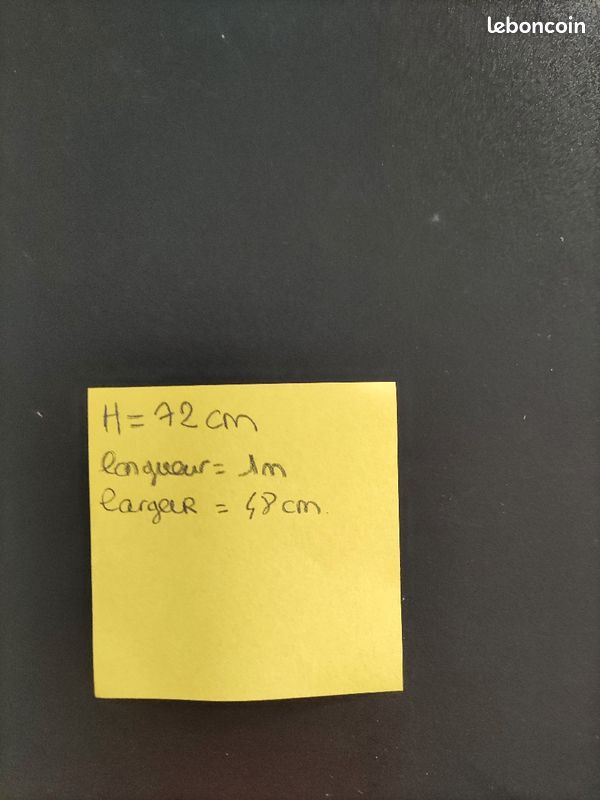 leboncoin
H = 72 cm
longueur = 1m
largeur = 48 cm.